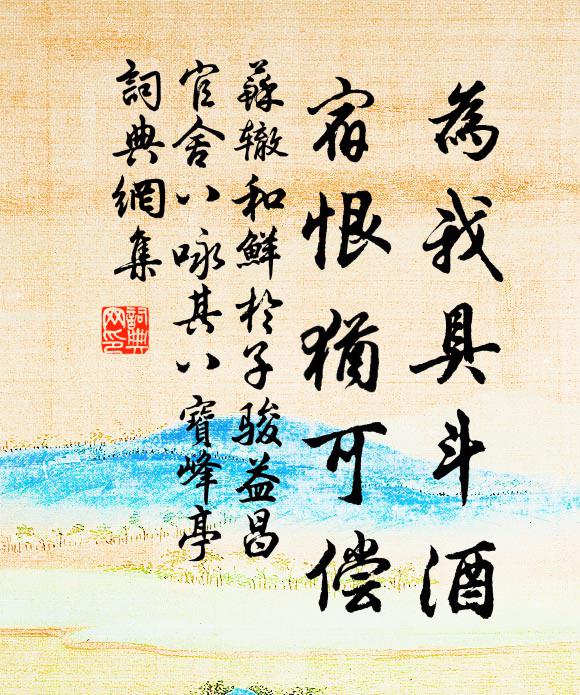 為我具斗酒
宿恨猶可偿
蘇辙和鮮於子骏益昌
官舍八咏其八寶峰亭
詞典網集
詞典
网印